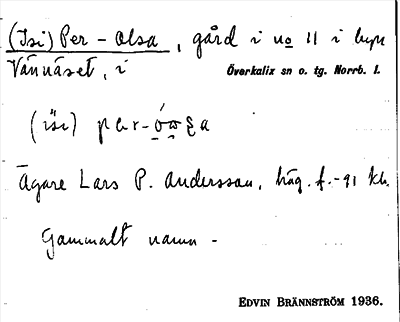 (Isi) Per - Olsa, gård i no 11 i byn
Vännäset, i Överkalix sn o. tg. Norrb. l.
(isi) per-
Ägare Lars P. Andersson, häg. f. -91 kh.
Gammalt namn -
EDVIN BRÄNNSTRÖM 1936.